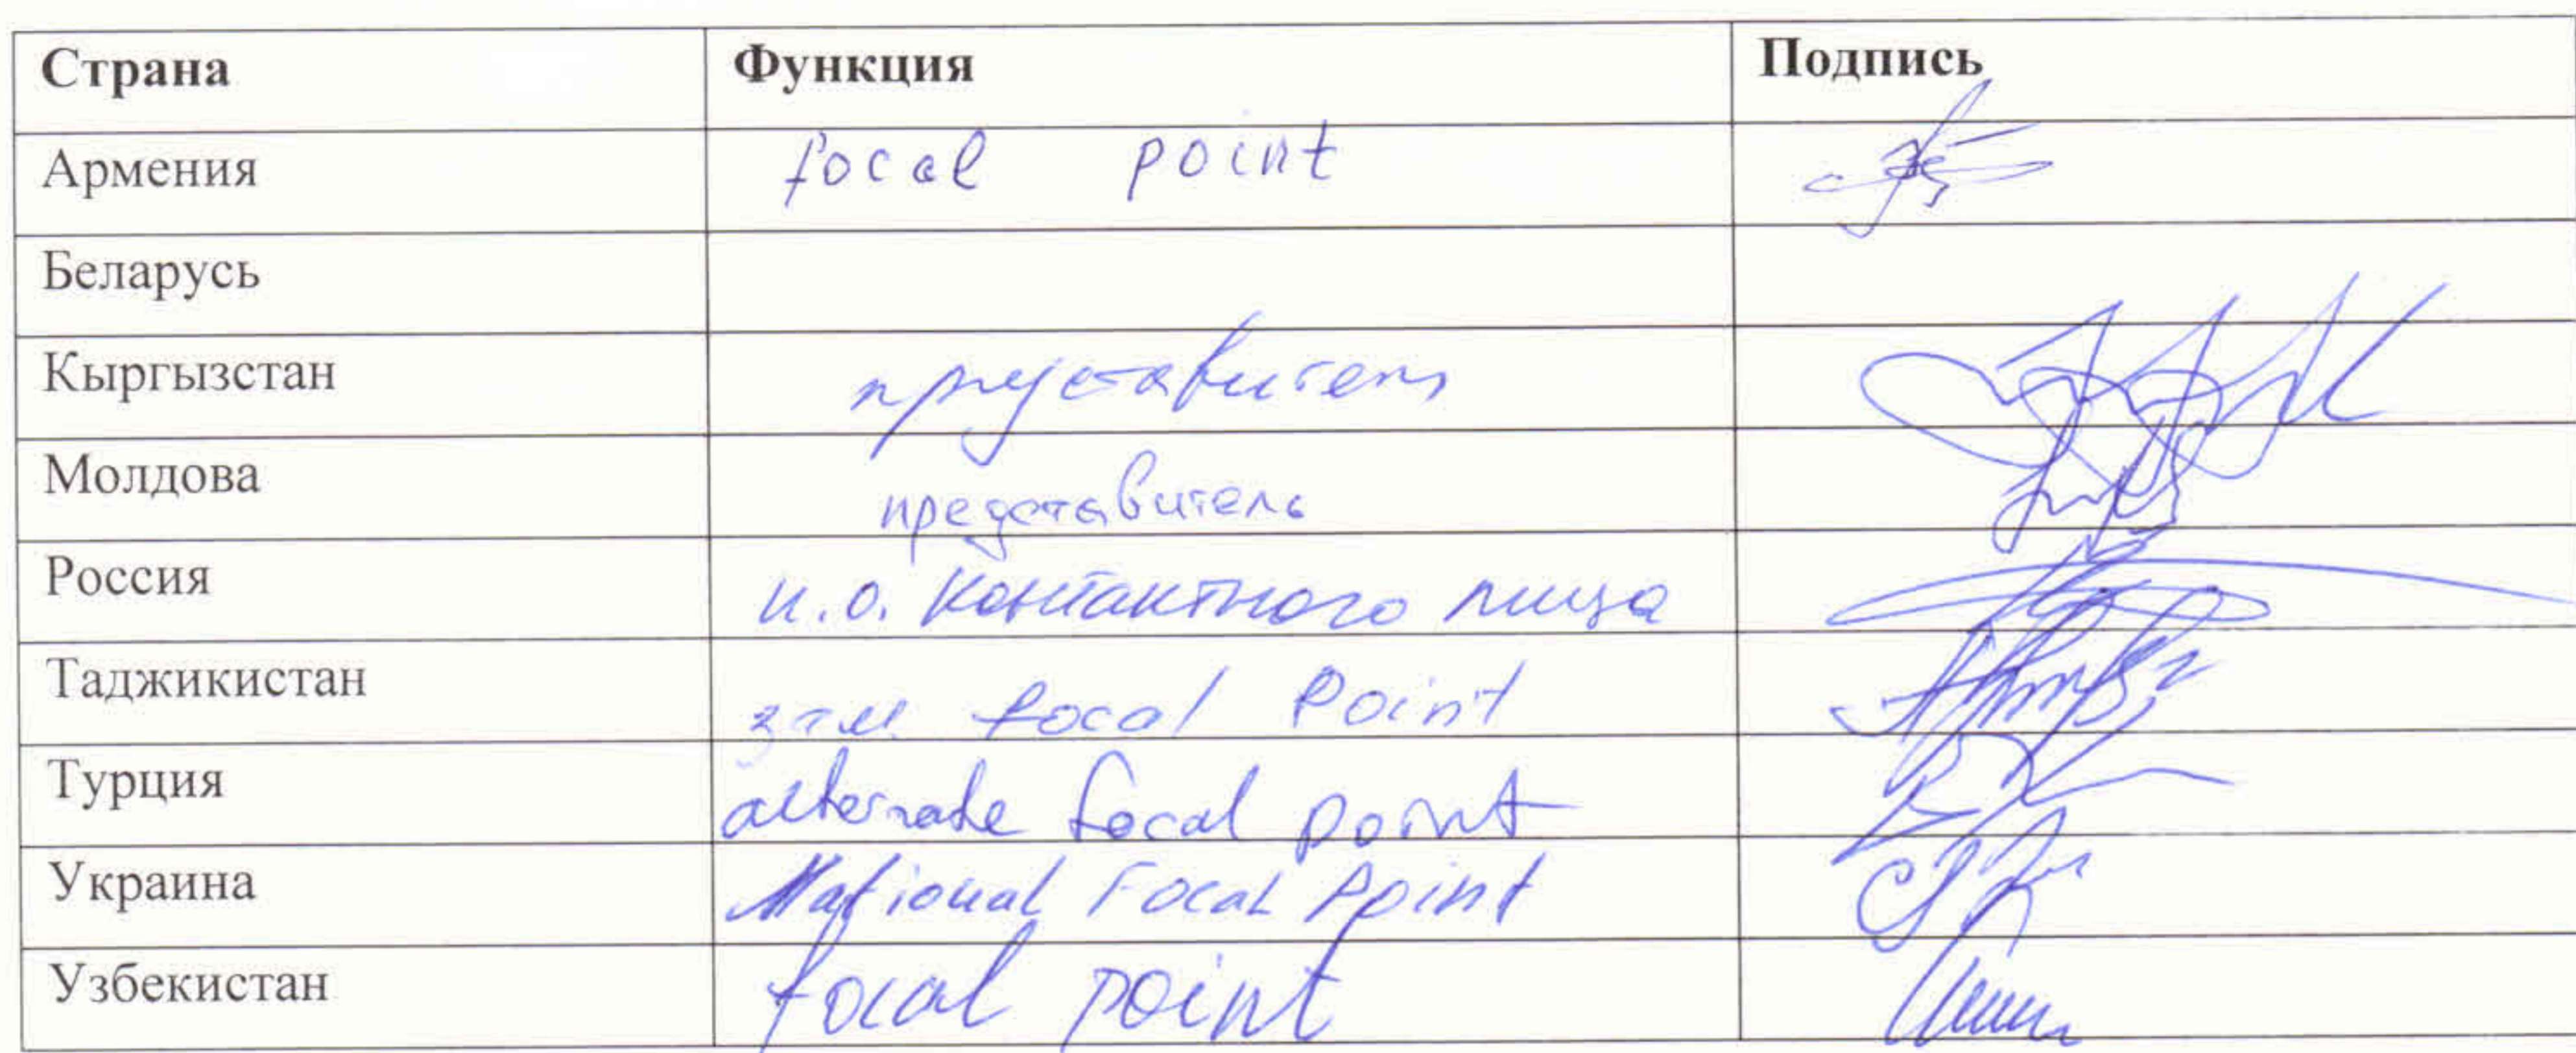 Страна Функция Подпись
Армения focal point
Беларусь
Кыргызстан представитель
Молдова представитель
Россия и.о. контактного лица
Таджикистан focal Point
Турция alternate focal point
Украина National Focal Point
Узбекистан focal point